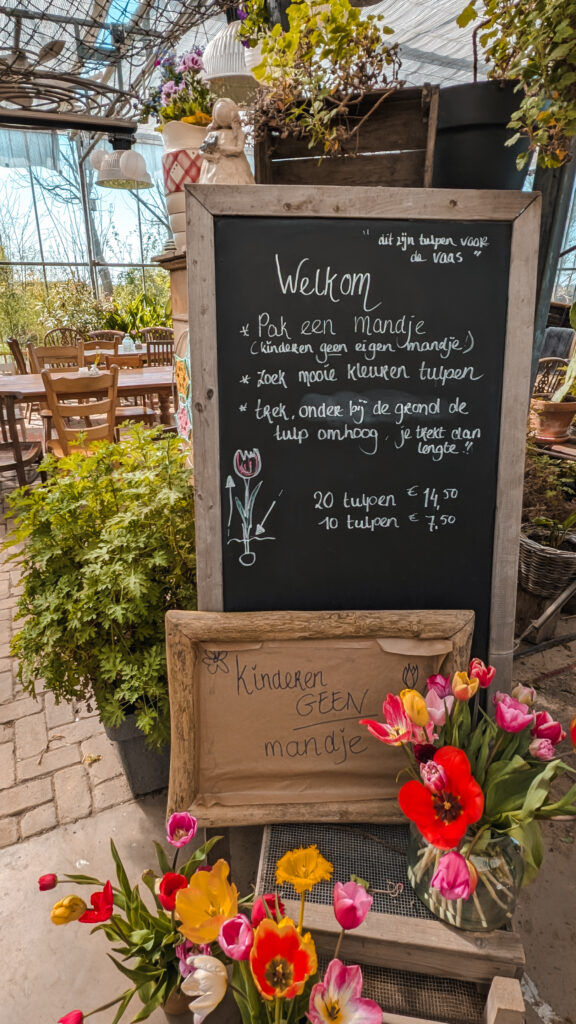 " dit zijn tulpen voor
de vaas "
Welkom
* Pak een mandje
(kinderen geen eigen mandje!)
* Zoek mooie kleuren tulpen
* trek, onder bij de grond de
tulp omhoog, je trekt dan
lengte.!!
20 tulpen € 14,50
10 tulpen € 7.50
Kinderen
GEEN
mandje